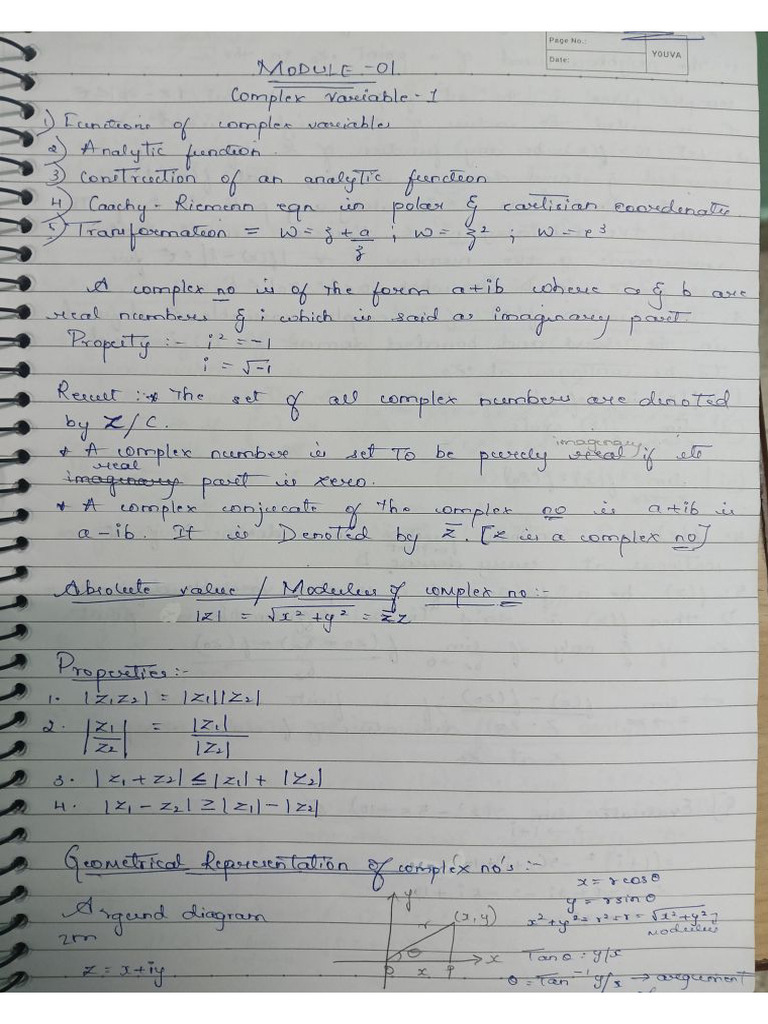 Page No.:
Date:
YOUVA
MODULE - 01
Complex variable - 1
1) Functions of complex variables
2) Analytic function.
3) Construction of an analytic function
4) Caachy - Riemenn eqn in polar & cartisian coordinate.
5) Transformation = W = z + a/z ; W = z² ; W = e^z
A complex no is of the form a+ib where a & b are
real numbers & i which is said as imaginary part.
Propeity :- i² = -1
i = √-1
Result :- * The set of all complex numbers are denoted
by Z/C.
imaginary
* A complex number is set To be purely real if its
real
imaginary part is zero.
* A complex conjucate of the complex no is a+ib is
a-ib. It is Denoted by z̄. [z is a complex no]
Absolute value / Modulus of complex no :-
|z| = √x²+y² = z̄z
Properties :-
1. |z₁z₂| = |z₁||z₂|
2. |z₁/z₂| = |z₁|/|z₂|
3. |z₁ + z₂| ≤ |z₁| + |z₂|
4. |z₁ - z₂| ≥ |z₁| - |z₂|
Geometrical Representation of complex no's :-
x = r cosθ
y = r sinθ
Argand diagram
y
r
(x, y)
x² + y² = r² = r = √x²+y² →
modulus
2m
θ
O
x
P
x
Tanθ = y/x
z = x+iy
θ = Tan⁻¹ y/x → arguement